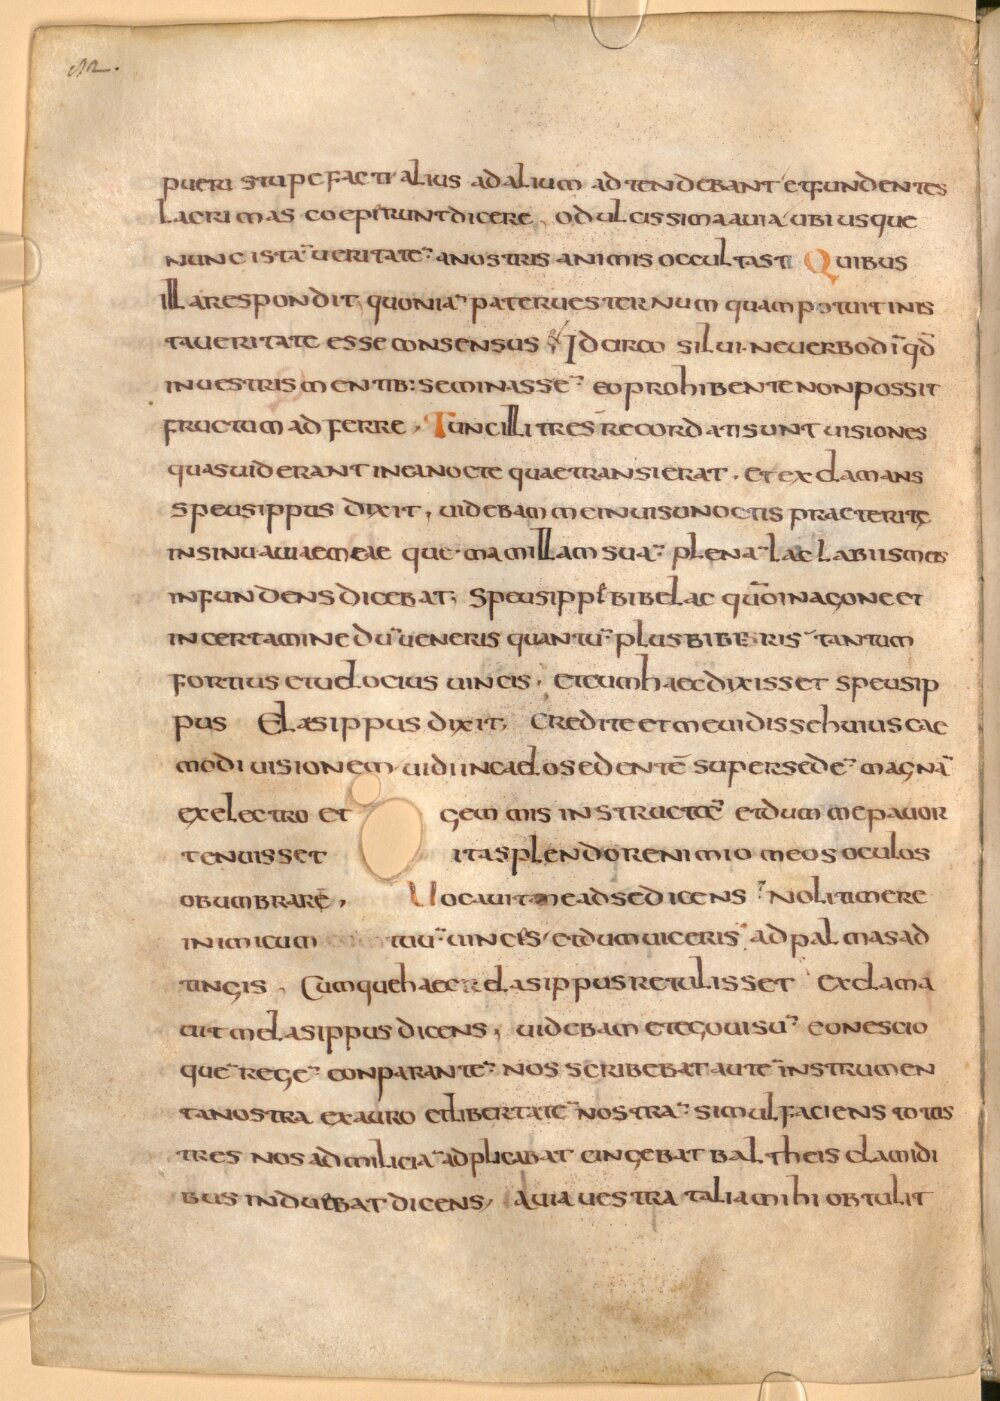 pueri stupefacti alius ad alium adtendebant et fundentes
lacrimas coeperunt dicere, o dulcissima auia ubi usque
nunc istā ueritatē a nostris animis occultasti Quibus
illa respondit, quoniā pater uester num quam potuit in is
ta ueritate esse consensus Idcirco silui. ne uerbo dī qđ
in uestris mentib: seminassē eo prohibente non possit
fructum adferre, Tunc illi tres recordati sunt uisiones
quas uiderant in ea nocte quae transierat. et exclamans
speusippus dixit, uidebam me in uisu noctis praeteritę
in sinu auiae meae que mamillam suā plenā lac labiis meis
infundens dicebat; speusippe bibe lac quō in agone et
in certamine dū ueneris quantū plus biberis tantum
fortius et uelocius uincis. et cum haec dixisset speusip
pus Elasippus dixit, Credite et me uidisse huiusce
modi uisionem uidi in caelo sedentē super sedē magnā
ex electro et gemmis instructā et dum me pauor
tenuisset ita splendore nimio meos oculos
obumbrarē, Uocauit me ad se dicens Noli timere
inimicum tuū uinces et dum uiceris ad palmas ad
tingis, Cumque haec elasippus retulisset Exclama
uit melasippus dicens, uidebam et ego uisū eo nescio
quē regē conparantē nos scribebat autē instrumen
ta nostra ex auro et libertatē nostrā simul faciens totis
tres nos ad miliciā adplicabat cingebat baltheis clamidi
bus induebat dicens, Auia uestra talia mihi obtulit